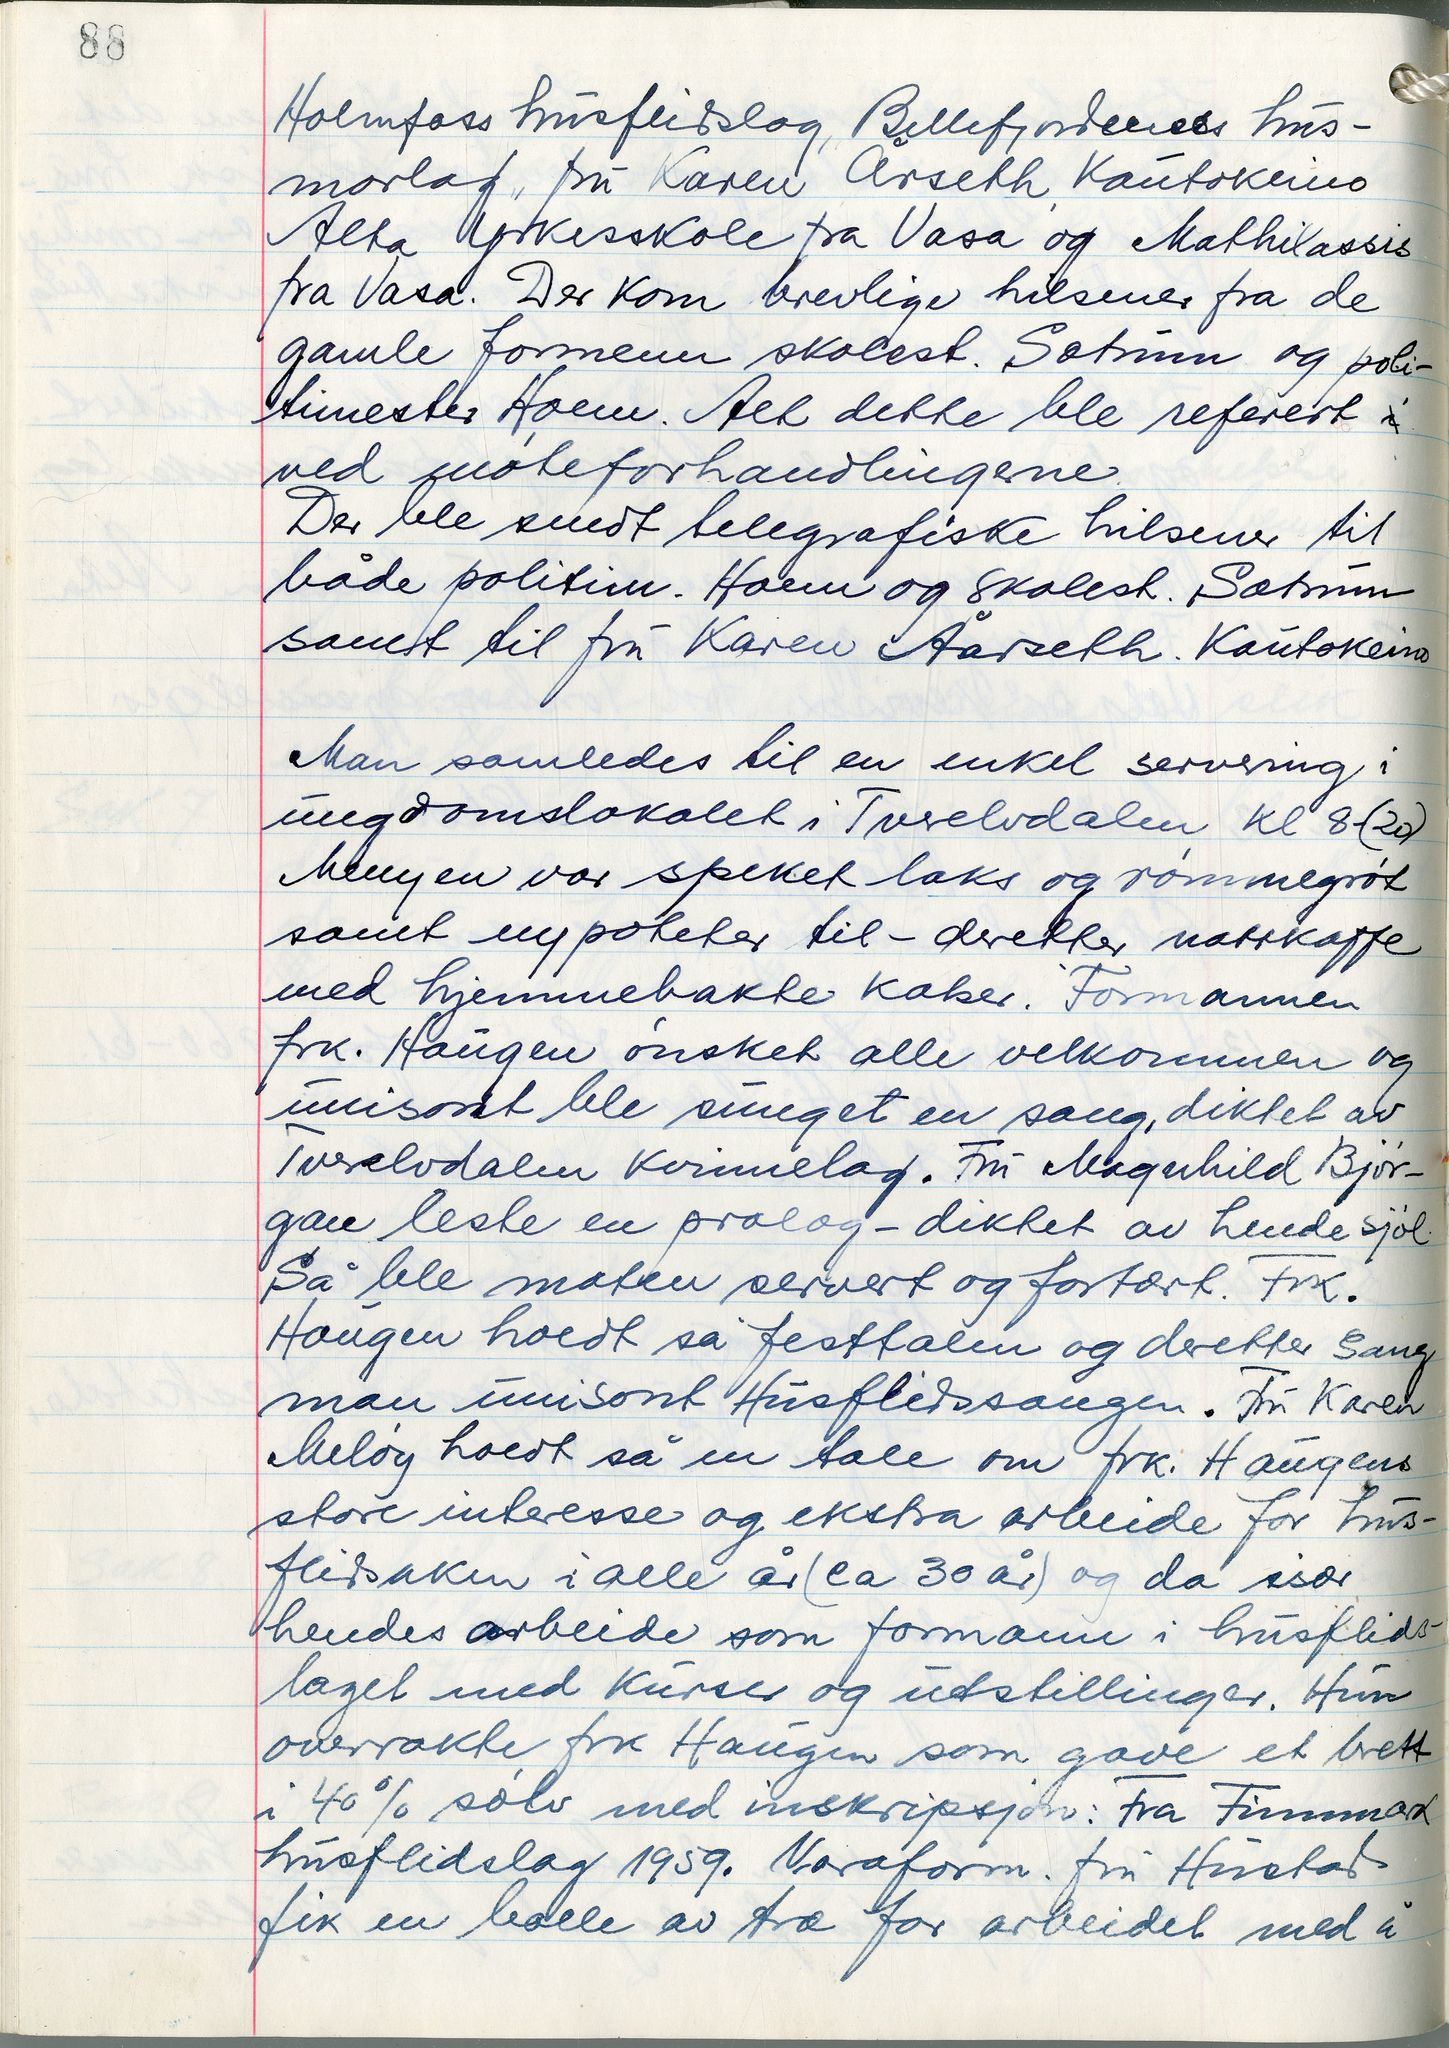 88
Holmfoss husflidslag, Billefjordenes hus-
morlag, frü Karen Årseth Kautokeino
Alta Yrkesskole fra Vasa og Mathilassis
fra Vasa. Der kom brevlige hilsener fra de
gamle formenn skolest. Sotrum og poli-
timester Hoem. Alt dette ble referert
ved møteforhandlingerne.
Der ble sendt telegrafiske hilsener til
både politim. Hoem og skolest. Sotrum
samt til frü Karen Aårseth. Kautokeino
Man samledes til en enkel servering i
ungdomslokalet i Tverelvdalen kl 8 (20)
Menyen var speket laks og rømmegrøt
samt nypoteter til - deretter natskaffe
med hjemmebakte kaker. Formannen
frk. Haugen ønsket alle velkommen og
unisont ble sunget en sang, diktet av
Tverelvdalen Kvinnelag. Frü Magnhild Bjør-
gan leste en prolog - diktet av hende sjøl.
Så ble maten servert og fortært. Frk.
Haugen holdt så festtalen og deretter sang
man unisont Husflidssangen. Frü Karen
Meløy holdt så en tale om frk. Haugens
store interesse og ekstra arbeide for hus-
flidsaken i alle år (ca 30 år) og da især
hendes arbeide som formann i husflids-
laget med kurser og utstillinger. Hun
overrakte frk Haugen som gave et brett
i 40% sølv med inskripsjon: Fra Finnmark
husflidslag 1959. Varaform. frü Hustad
fik en bolle av træ for arbeidet med å